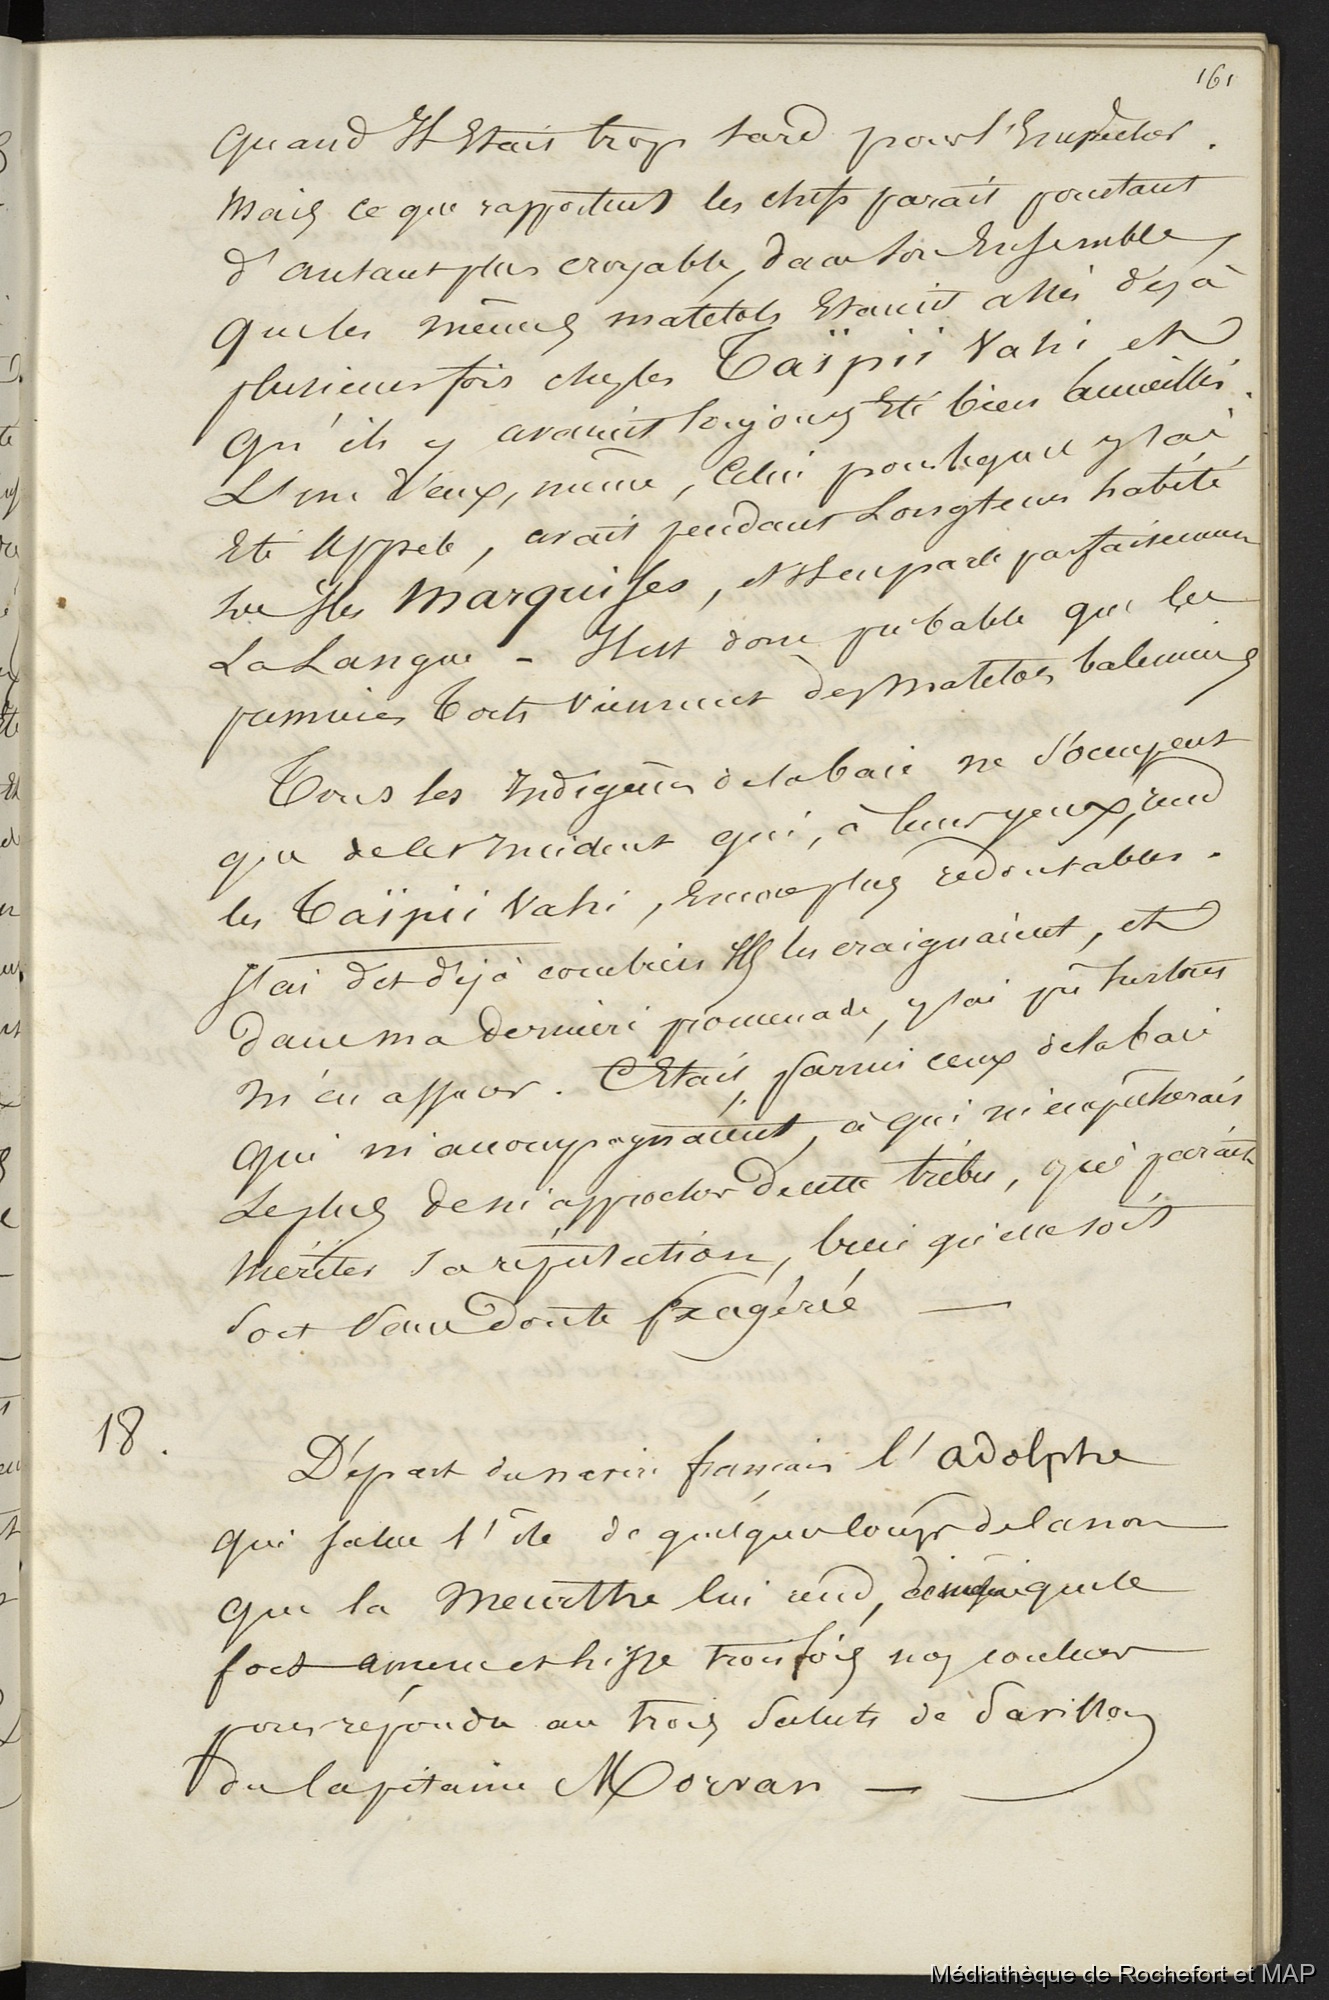 161
quand Il Etait trop tard pour l'Empêcher.
Mais ce que rapportent les chefs parait pourtant
d'autant plus croyable, dans son Ensemble,
que les mêmes matelots Etaient allés déjà
plusieurs fois chez les Taïpii Vahi et
qu'ils y avaient toujours Eté bien accueillis.
L'un d'eux, même, Celui pour lequel j'ai
Eté appelé, avait pendant Longtems habité
les Marquises, et Il en parle parfaitement
La Langue - Il est donc probable que les
premiers torts viennent des Matelots baleiniers
Tous les Indigènes de la baie ne s'occupent
que de cet Incident qui, à leurs yeux, rend
les Taïpii Vahi, Encore plus redoutables.
J'ai dit déjà combien Ils les craignaient, et
dans ma dernière promenade, j'ai pû surtout
m'en assurer. C'Etait, parmi ceux de la baie
qui m'accompagnaient, à qui m'empêcherait
Le plus de m'approcher de cette tribu, qui parait
mériter sa réputation, bien qu'elle soit
soit sans doute Exagérée —
18.
Départ du navire français l'Adolphe
qui salue l'île de quelques coups de canon
que la Meurthe lui rend, que le
fort amene et hisse trois fois nos couleurs
pour répondre au trois saluts de Pavillon
du Capitaine Morvan —
Médiathèque de Rochefort et MAP